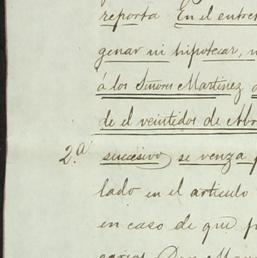 reporta. En el entre
genar ni hipotecar,
á los Señores Martinez
de el veintidos de Abr
2.a sucesivo se venza
lado en el articulo
en caso de que